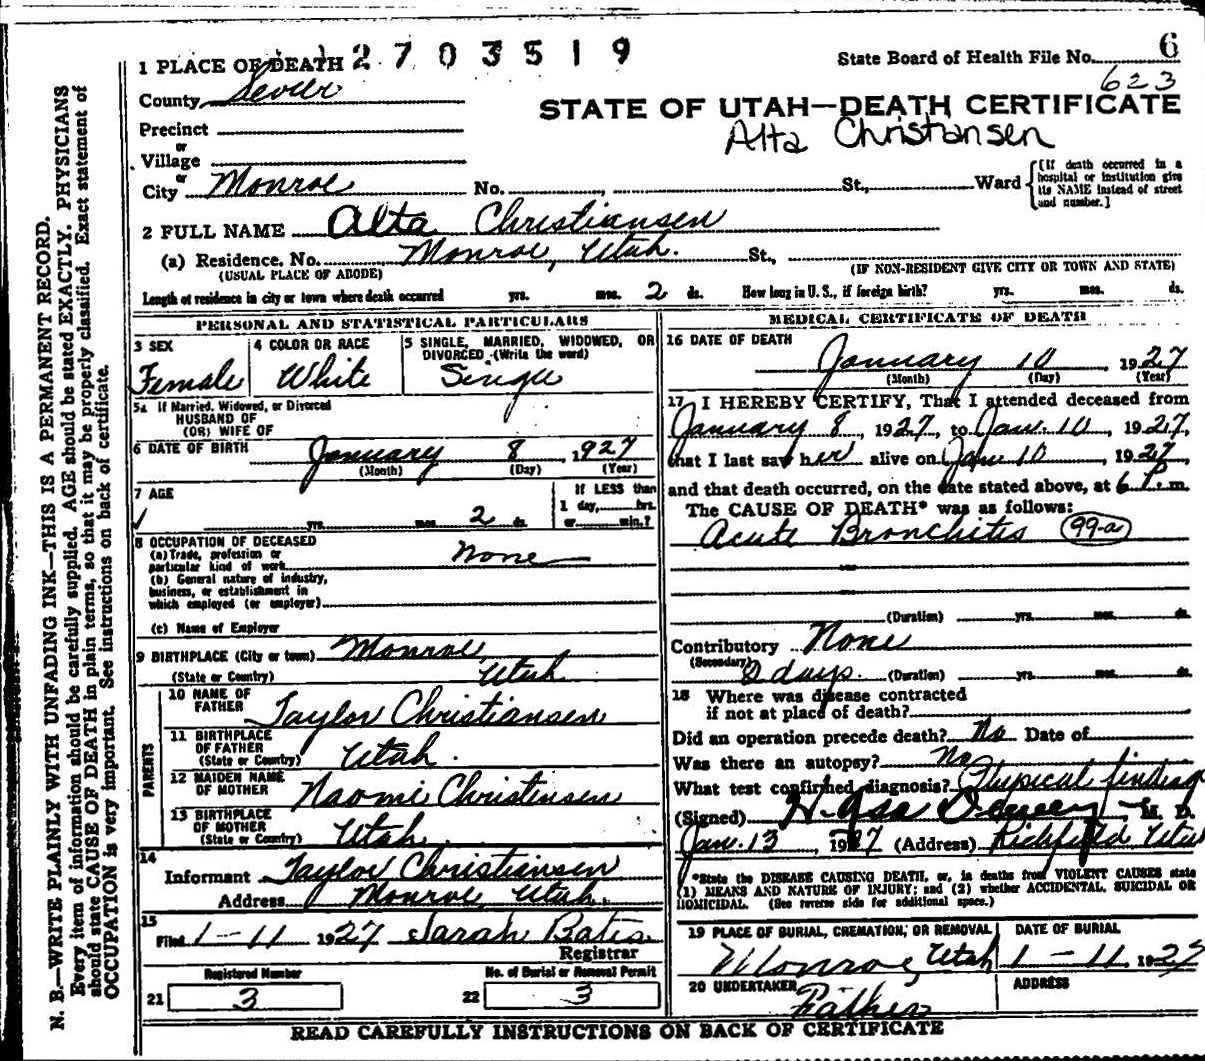 N. B.—WRITE PLAINLY WITH UNFADING INK—THIS IS A PERMANENT RECORD.
Every item of information should be carefully supplied. AGE should be stated EXACTLY. PHYSICIANS
should state CAUSE OF DEATH in plain terms, so that it may be properly classified. Exact statement of
OCCUPATION is very important. See instructions on back of certificate.
2703519
State Board of Health File No. 6
623
1 PLACE OF DEATH
County Sevier
STATE OF UTAH—DEATH CERTIFICATE
Alta Christiansen
Precinct
or
Village
or
City Monroe No. , St., Ward
[If death occurred in a
hospital or institution give
its NAME instead of street
and number.]
2 FULL NAME Alta Christiansen
(a) Residence. No. Monroe, Utah. St.,
(USUAL PLACE OF ABODE) (IF NON-RESIDENT GIVE CITY OR TOWN AND STATE)
Length of residence in city or town where death occurred yrs. mos. 2 ds. How long in U. S., if foreign birth? yrs. mos. ds.
PERSONAL AND STATISTICAL PARTICULARS
3 SEX Female
4 COLOR OR RACE White
5 SINGLE, MARRIED, WIDOWED, OR
DIVORCED (Write the word)
Single
5a If Married, Widowed, or Divorced
HUSBAND OF
(OR) WIFE OF
6 DATE OF BIRTH January 8, 1927
(Month) (Day) (Year)
7 AGE
yrs. mos. 2 ds.
If LESS than
1 day, hrs.
or min.?
8 OCCUPATION OF DECEASED
(a) Trade, profession or
particular kind of work None
(b) General nature of industry,
business, or establishment in
which employed (or employer)
(c) Name of Employer
9 BIRTHPLACE (City or town) Monroe
(State or Country) Utah
PARENTS
10 NAME OF
FATHER Taylor Christiansen
11 BIRTHPLACE
OF FATHER
(State or Country) Utah.
12 MAIDEN NAME
OF MOTHER Naomi Christensen
13 BIRTHPLACE
OF MOTHER
(State or Country) Utah
14
Informant Taylor Christiansen
Address Monroe, Utah.
15
Filed 1-11 1927 Sarah Bates
Registrar
Registered Number
21 3
No. of Burial or Removal Permit
22 3
MEDICAL CERTIFICATE OF DEATH
16 DATE OF DEATH
January 10, 1927
(Month) (Day) (Year)
17 I HEREBY CERTIFY, That I attended deceased from
January 8, 1927, to Jan. 10, 1927,
that I last saw her alive on Jan 10, 1927,
and that death occurred, on the date stated above, at 6 P. m.
The CAUSE OF DEATH* was as follows:
Acute Bronchitis 99-a
(Duration) yrs. mos. ds.
Contributory None
(Secondary) 2 days. (Duration) yrs. mos. ds.
18 Where was disease contracted
if not at place of death?
Did an operation precede death? No Date of
Was there an autopsy? No
What test confirmed diagnosis? Physical finding
(Signed) H. Asa Dewey, M. D.
Jan. 13, 1927 (Address) Richfield Utah
*State the DISEASE CAUSING DEATH, or, in deaths from VIOLENT CAUSES state
(1) MEANS AND NATURE OF INJURY; and (2) whether ACCIDENTAL, SUICIDAL OR
HOMICIDAL. (See reverse side for additional space.)
19 PLACE OF BURIAL, CREMATION, OR REMOVAL DATE OF BURIAL
Monroe, Utah 1-11, 1927
20 UNDERTAKER ADDRESS
Father
READ CAREFULLY INSTRUCTIONS ON BACK OF CERTIFICATE